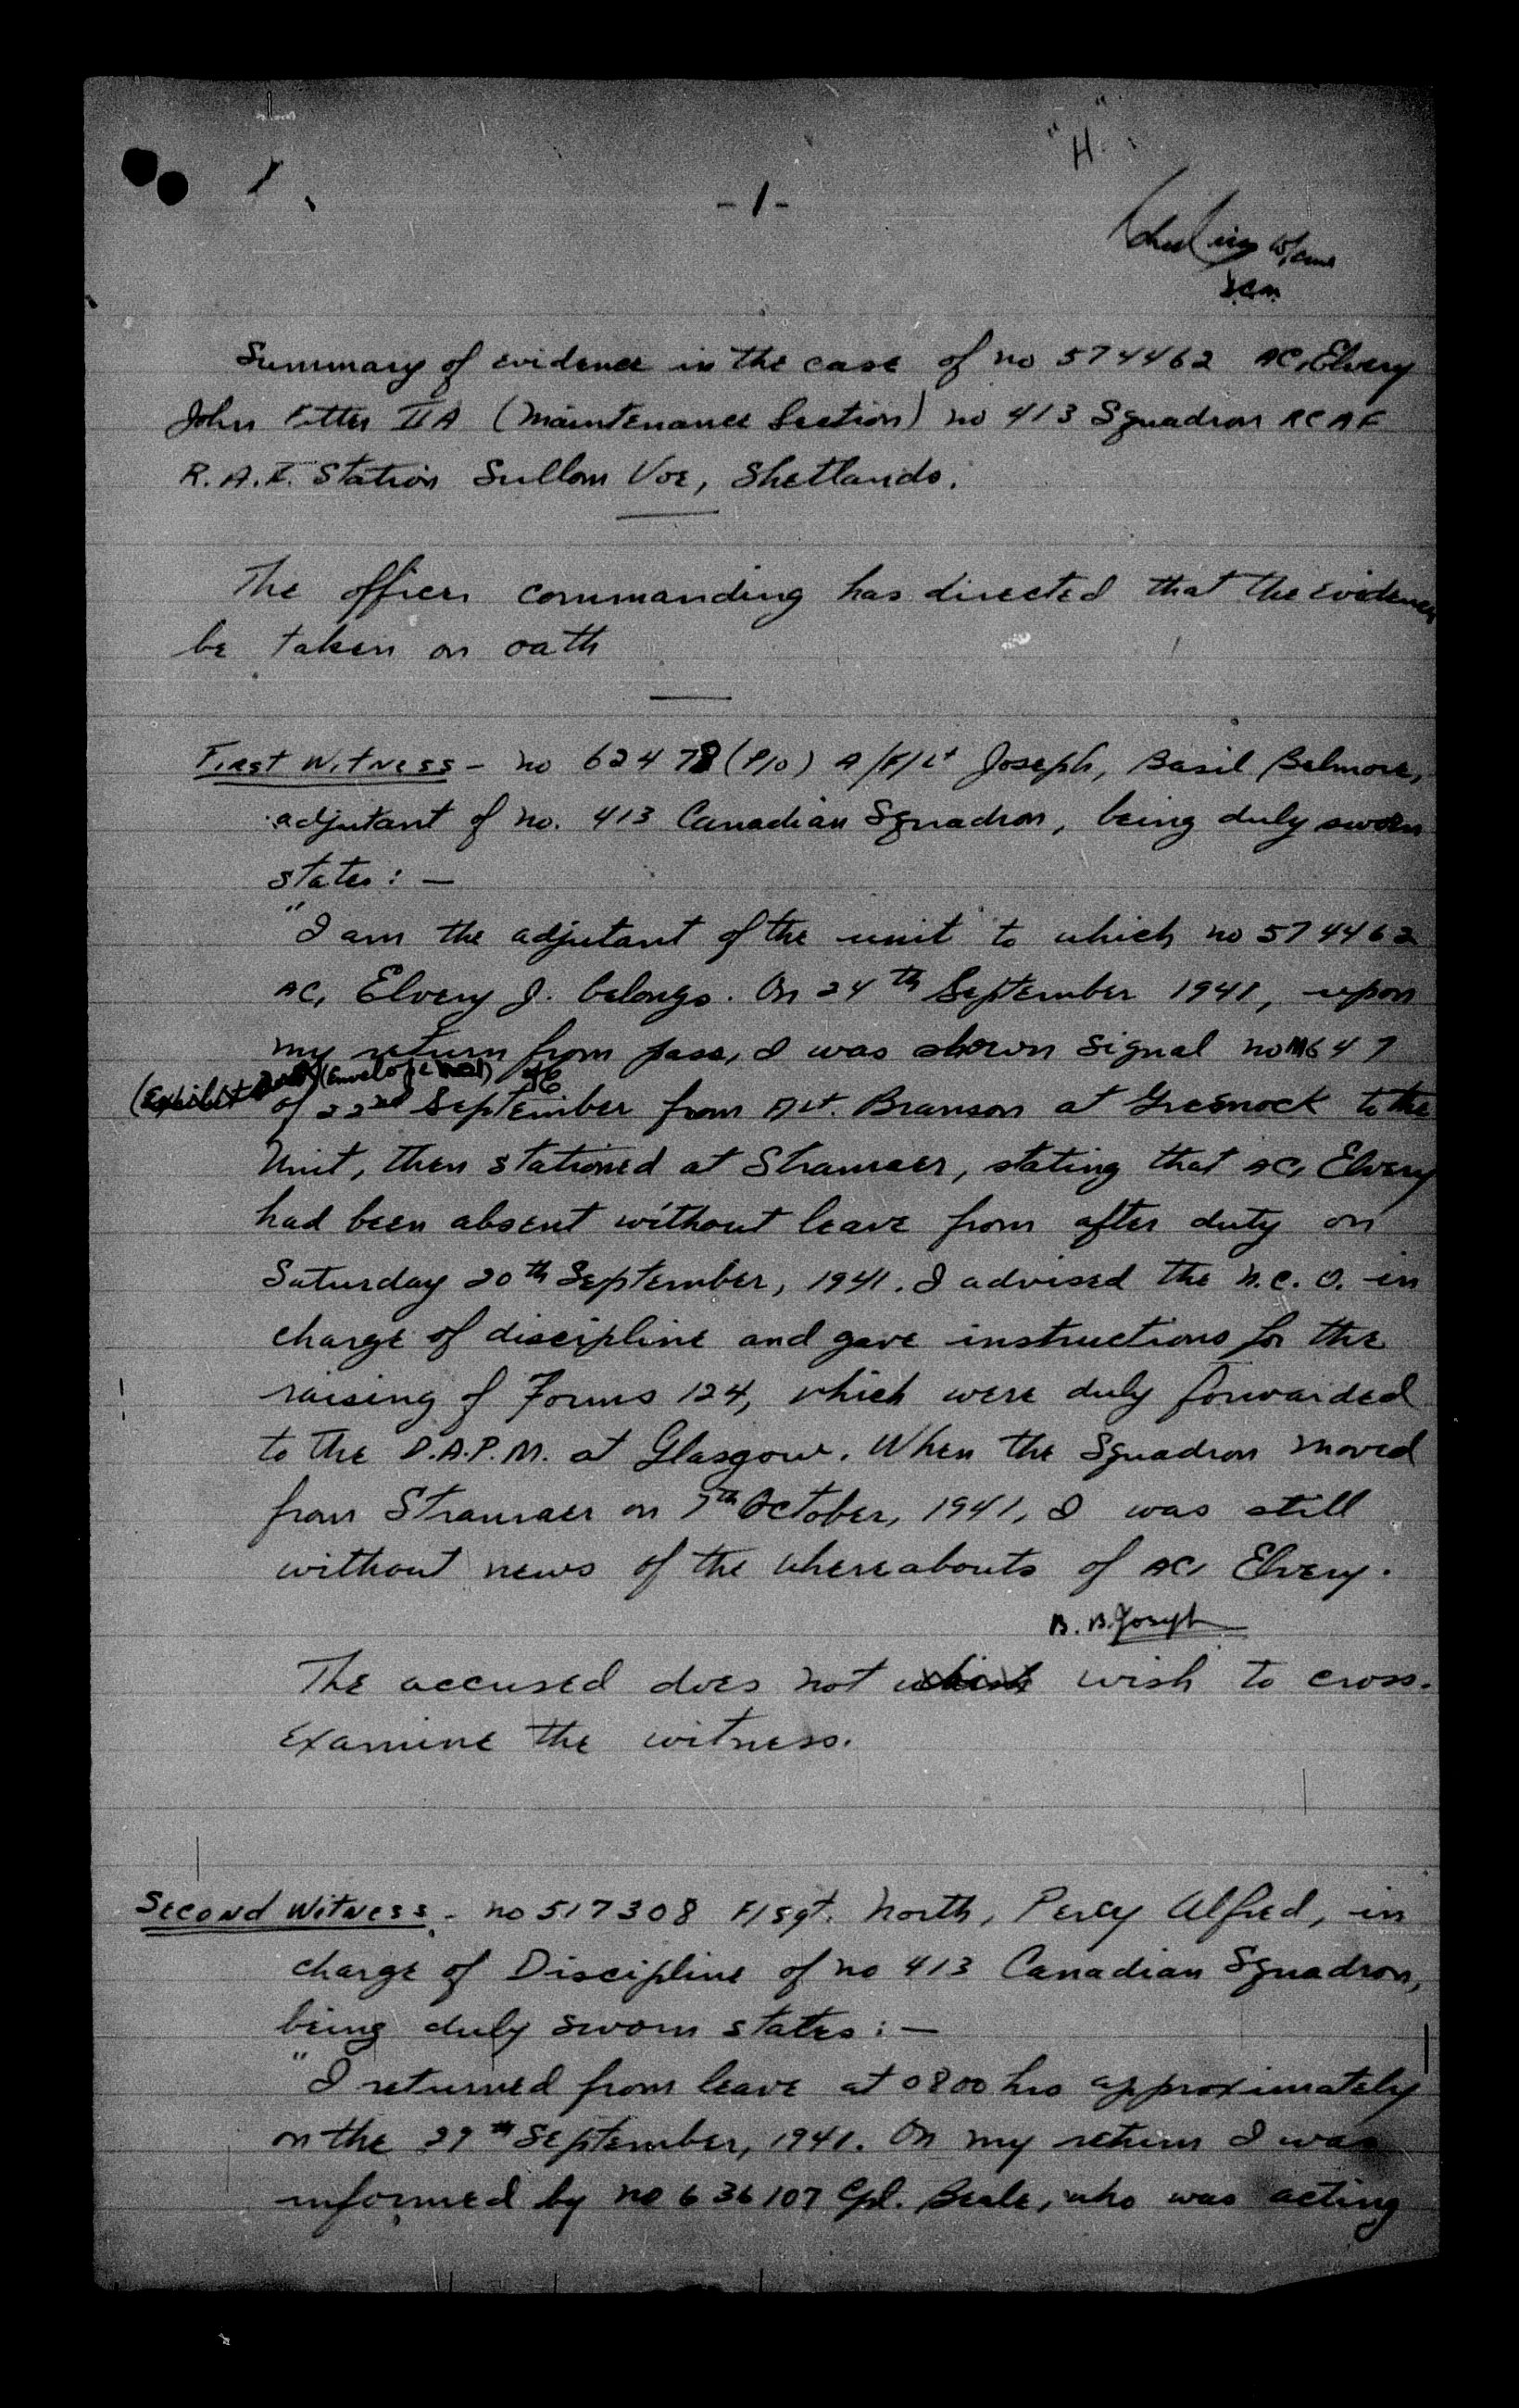 "H"
-1-
Summary of evidence in the case of no 574462 AC1 Elvery
John Fitter IIA (Maintenance Section) no 413 Squadron RCAF
R.A.F. Station Sullom Voe, Shetlands.
The officer commanding has directed that the evidence
be taken on oath
First Witness - no 62478 (P/O) A/F/Lt Joseph, Basil Belmore,
adjutant of no. 413 Canadian Squadron, being duly sworn
states: -
"I am the adjutant of the unit to which no 574462
AC1 Elvery J. belongs. On 24th September 1941, upon
my return from pass, I was shown signal no M647
(Exhibit (Envelope
of 22nd September from F/Lt. Branson at Greenock to the
Unit, then stationed at Stranraer, stating that AC1 Elvery
had been absent without leave from after duty on
Saturday 20th September, 1941. I advised the N.C.O. in
charge of discipline and gave instructions for the
raising of Forms 124, which were duly forwarded
to the D.A.P.M. at Glasgow. When the Squadron moved
from Stranraer on 7th October, 1941, I was still
without news of the whereabouts of AC1 Elvery.
B. B. Joseph
The accused does not wish to cross-
examine the witness.
Second Witness - no 517308 F/Sgt. North, Percy Alfred, in
charge of Discipline of no 413 Canadian Squadron,
being duly sworn states: -
"I returned from leave at 0800 hrs approximately
on the 29th September, 1941. On my return I was
informed by no 636107 Cpl. Beale, who was acting